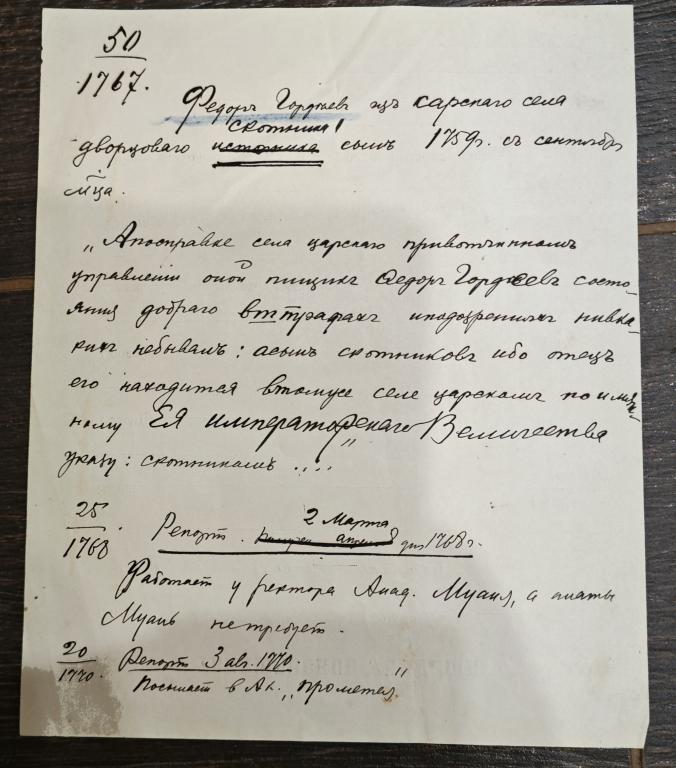 50
1767.
Федоръ Гордѣевъ изъ Сарскаго села
скотника!
дворцоваго истопника сынъ 1759г. съ сентябр
мца.
„Апосправке села царскаго привотчинномъ
управлении оной пищикъ Федоръ Гордѣевъ состо-
яния добраго вштрафахъ иподозренияхъ нивка-
кихъ небывалъ: асынъ скотниковъ ибо отецъ
его находится втомже селе царскомъ по имян-
ному Ея императорскаго Величества
указу: скотникомъ ....
25
1768.
2 Марта
Репортъ. дня 1768г.
Работает у ректора Акад. Жилля, а платы
Жилль не требует.
20
1770.
Репортъ 3 авг. 1770.
Посылает в Ак. „Прометея"